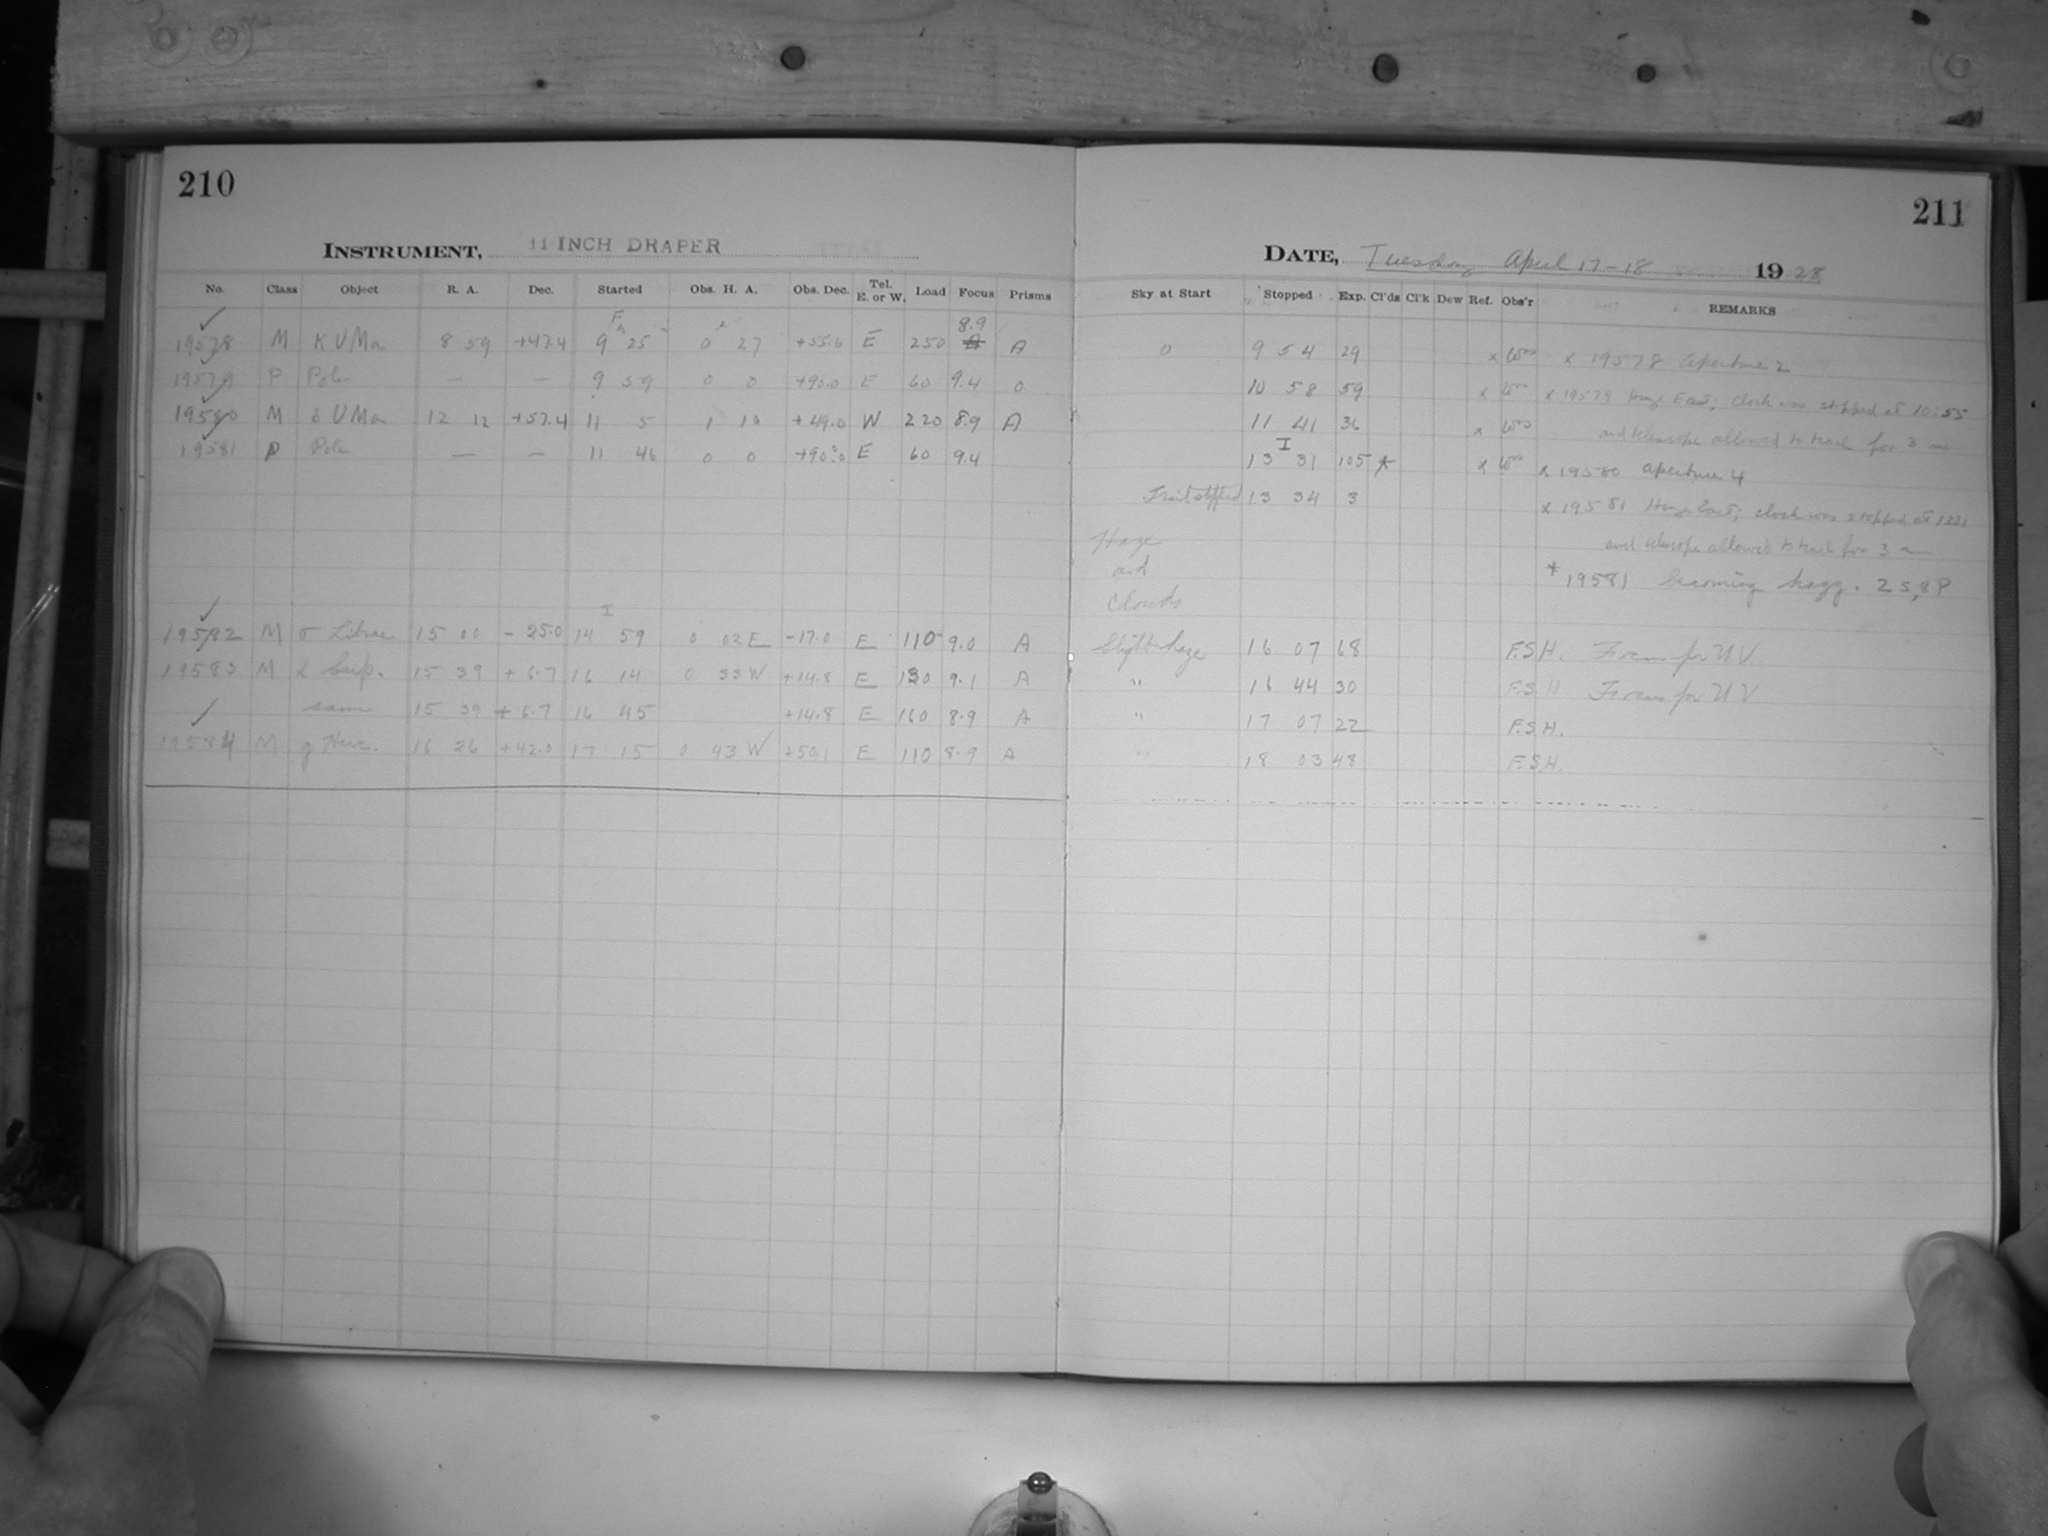 210
211
INSTRUMENT, 11 INCH DRAPER
DATE, Tuesday April 17-18 1928
No. Class Object R. A. Dec. Started Obs. H. A. Obs. Dec. Tel. E. or W. Load Focus Prisms Sky at Start Stopped Exp. Cl'ds Cl'k Dew Ref. Obs'r REMARKS
8.9
19578 M K U Ma 8 59 +47.4 9 25 0 27 +55.6 E 250 A 0 9 54 29 x x 19578 Aperture 2
19579 P Pole — — 9 59 0 0 +90.0 E 60 9.4 0 10 58 59 x x 19579 Haze East; clock was stopped at 10:55
19580 M δ U Ma 12 12 +57.4 11 5 1 10 +49.0 W 220 8.9 A 11 41 36 x and telescope allowed to trail for 3 m
I
19581 P Pole — — 11 46 0 0 +90.0 E 60 9.4 13 31 105 * x x 19580 Aperture 4
Trail stopped 13 34 3 x 19581 Haze East; clock was stopped at 1331
Haze and telescope allowed to trail for 3 m
and
* 19581 becoming hazy.
Clouds
I
19582 M σ Librae 15 00 - 25.0 14 59 0 02 E -17.0 E 110 9.0 A Slight haze 16 07 68 F.S.H. Focus for U V.
19583 M α Serp. 15 39 + 6.7 16 14 0 33 W +14.8 E 130 9.1 A " 16 44 30 F.S.H Focus for U V
same 15 39 + 6.7 16 45 +14.8 E 160 8.9 A " 17 07 22 F.S.H.
19584 M g Herc. 16 26 +42.0 17 15 0 43 W +50.1 E 110 8.9 A " 18 03 48 F.S.H.